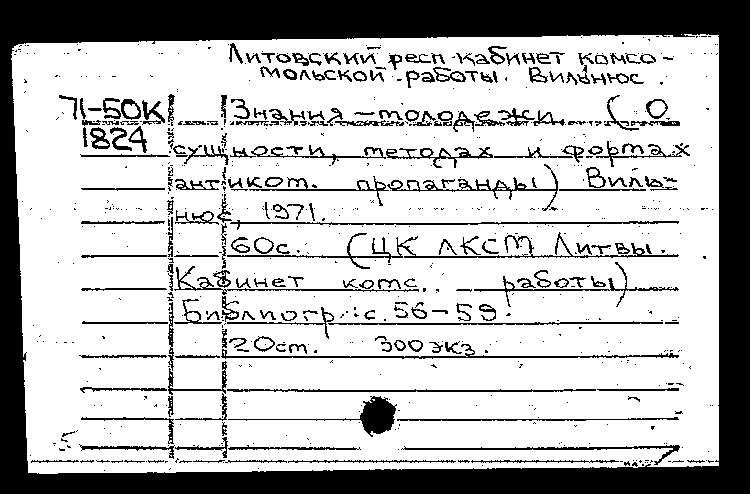 Литовский респ кабинет комсо-
мольской работы. Вильнюс.
71-50К Знания – молодежи. (О
1824 сущности, методах и формах
антиком. пропаганды) Виль-
нюс, 1971.
60с. (ЦК ЛКСМ Литвы.
Кабинет комс. работы)
Библиогр.: с. 56-59.
20 ст. 300 экз.
5